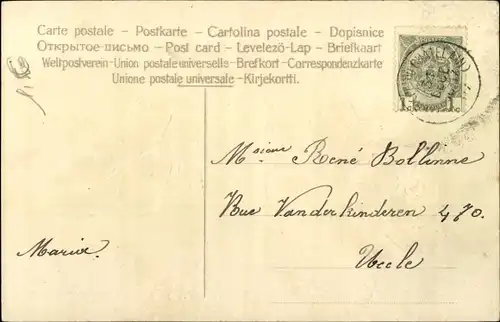 Carte postale – Postkarte – Cartolina postale – Dopisnice
Открытое письмо – Post card – Levelező-Lap – Briefkaart
Weltpostverein – Union postale universelle – Brefkort – Correspondenzkarte
Unione postale universale – Kirjekortti.
1 1
Msieur René Bollinne
Rue Vanderkinderen 470.
Uccle
Maria.